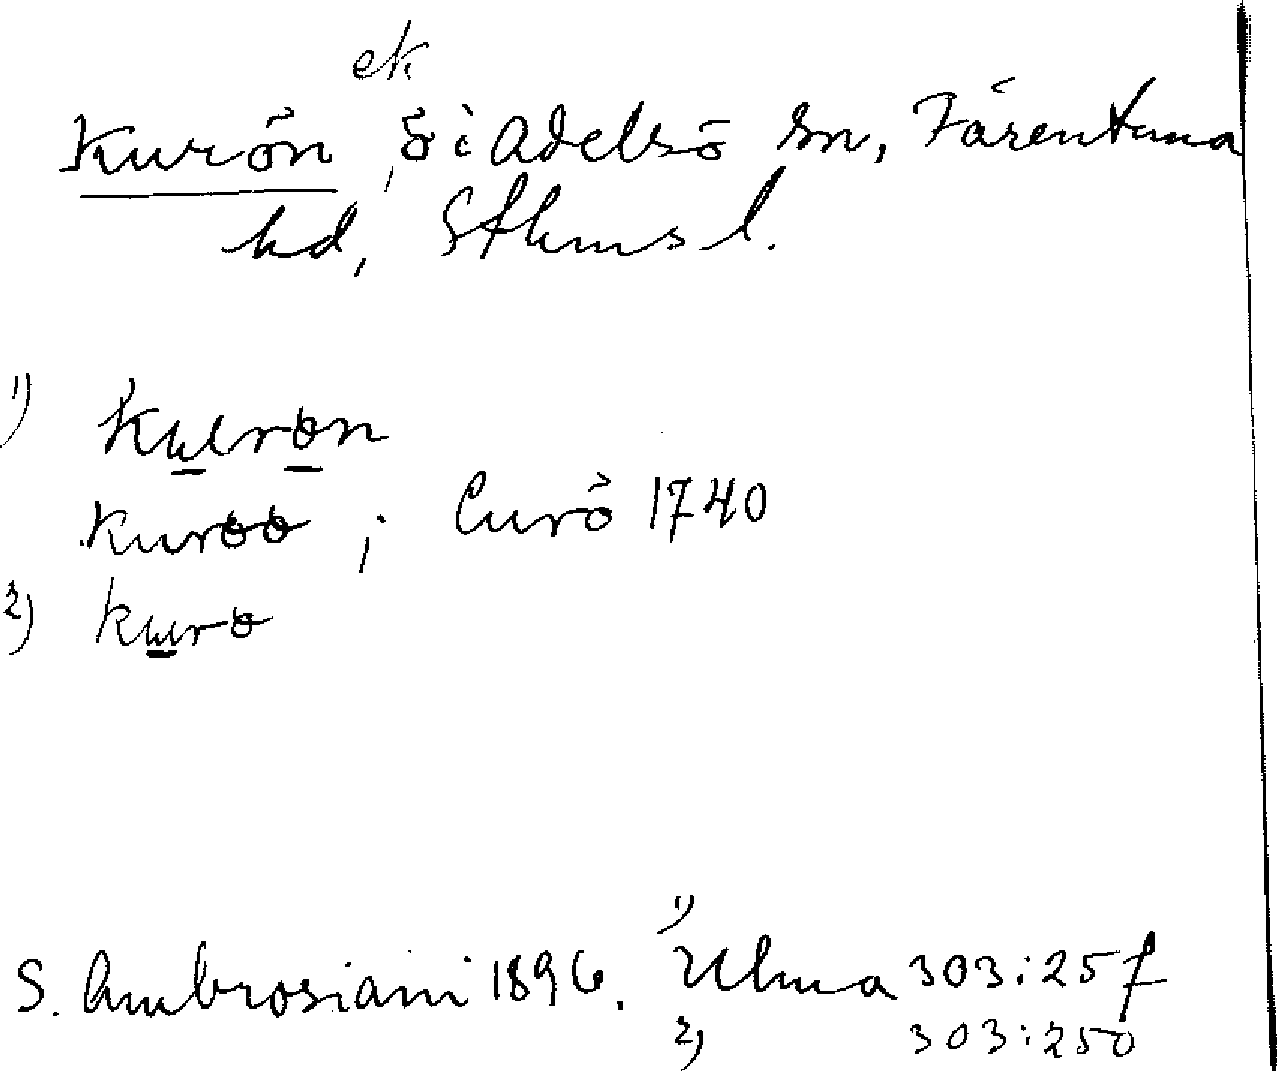 ek
Kurön, ö i Adelsö sn, Färentuna
hd, Sthms l.
1) Kurɵn
Kurɵɵ ; Curö 1740
2) kurɵ
S. Ambrosiani 1896. 1) Ulma 303:25 f
2) 303:250